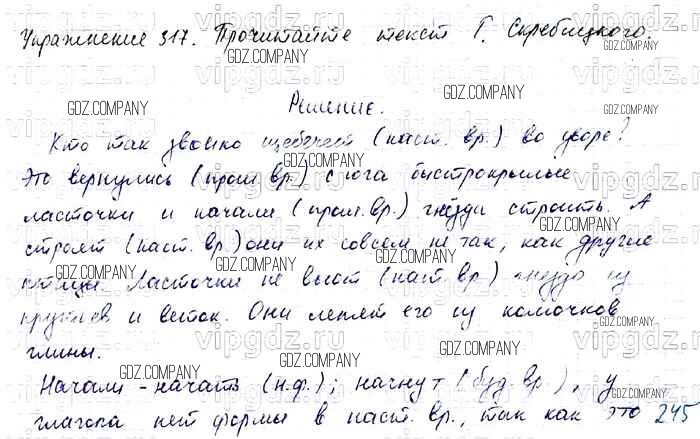 Упражнение 317. Прочитайте текст Г. Скребицкого.
Решение.
Кто так звонко щебечет (наст. вр.) во дворе?
Это вернулись (прош. вр.) с юга быстрокрылые
ласточки и начали (прош. вр.) гнёзда строить. А
строят (наст. вр.) они их совсем не так, как другие
птицы. Ласточки не вьют (наст. вр.) гнездо из
прутьев и веток. Они лепят его из комочков
глины.
Начали - начать (н.ф.); начнут (буд. вр.), у
глагола нет формы в наст. вр., так как это 245
vipgdz.com
GDZ.COMPANY